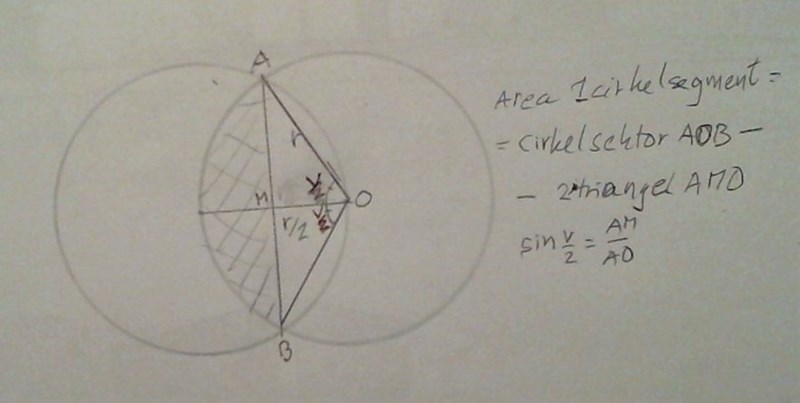 A
r
v/2
M
O
r/2
v/2
B
Area 1 cirkelsegment =
= cirkelsektor AOB −
− 2·triangel AMO
sin v/2 = AM/AO